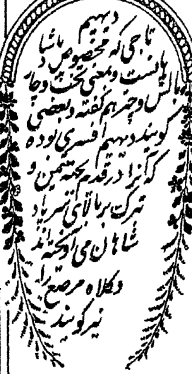 دیهیم
تاجی که مخصوص پادشا
هانست و بمعنی تخت و چار
بالش و چتر هم گفته و بعضی
گویند دیهیم افسری بوده
که آنرا در قدیم بجهة تیمن و
تبرک بر بالای سر پاد
شاهان می آویخته اند
و کلاه مرصع را
نیز گویند